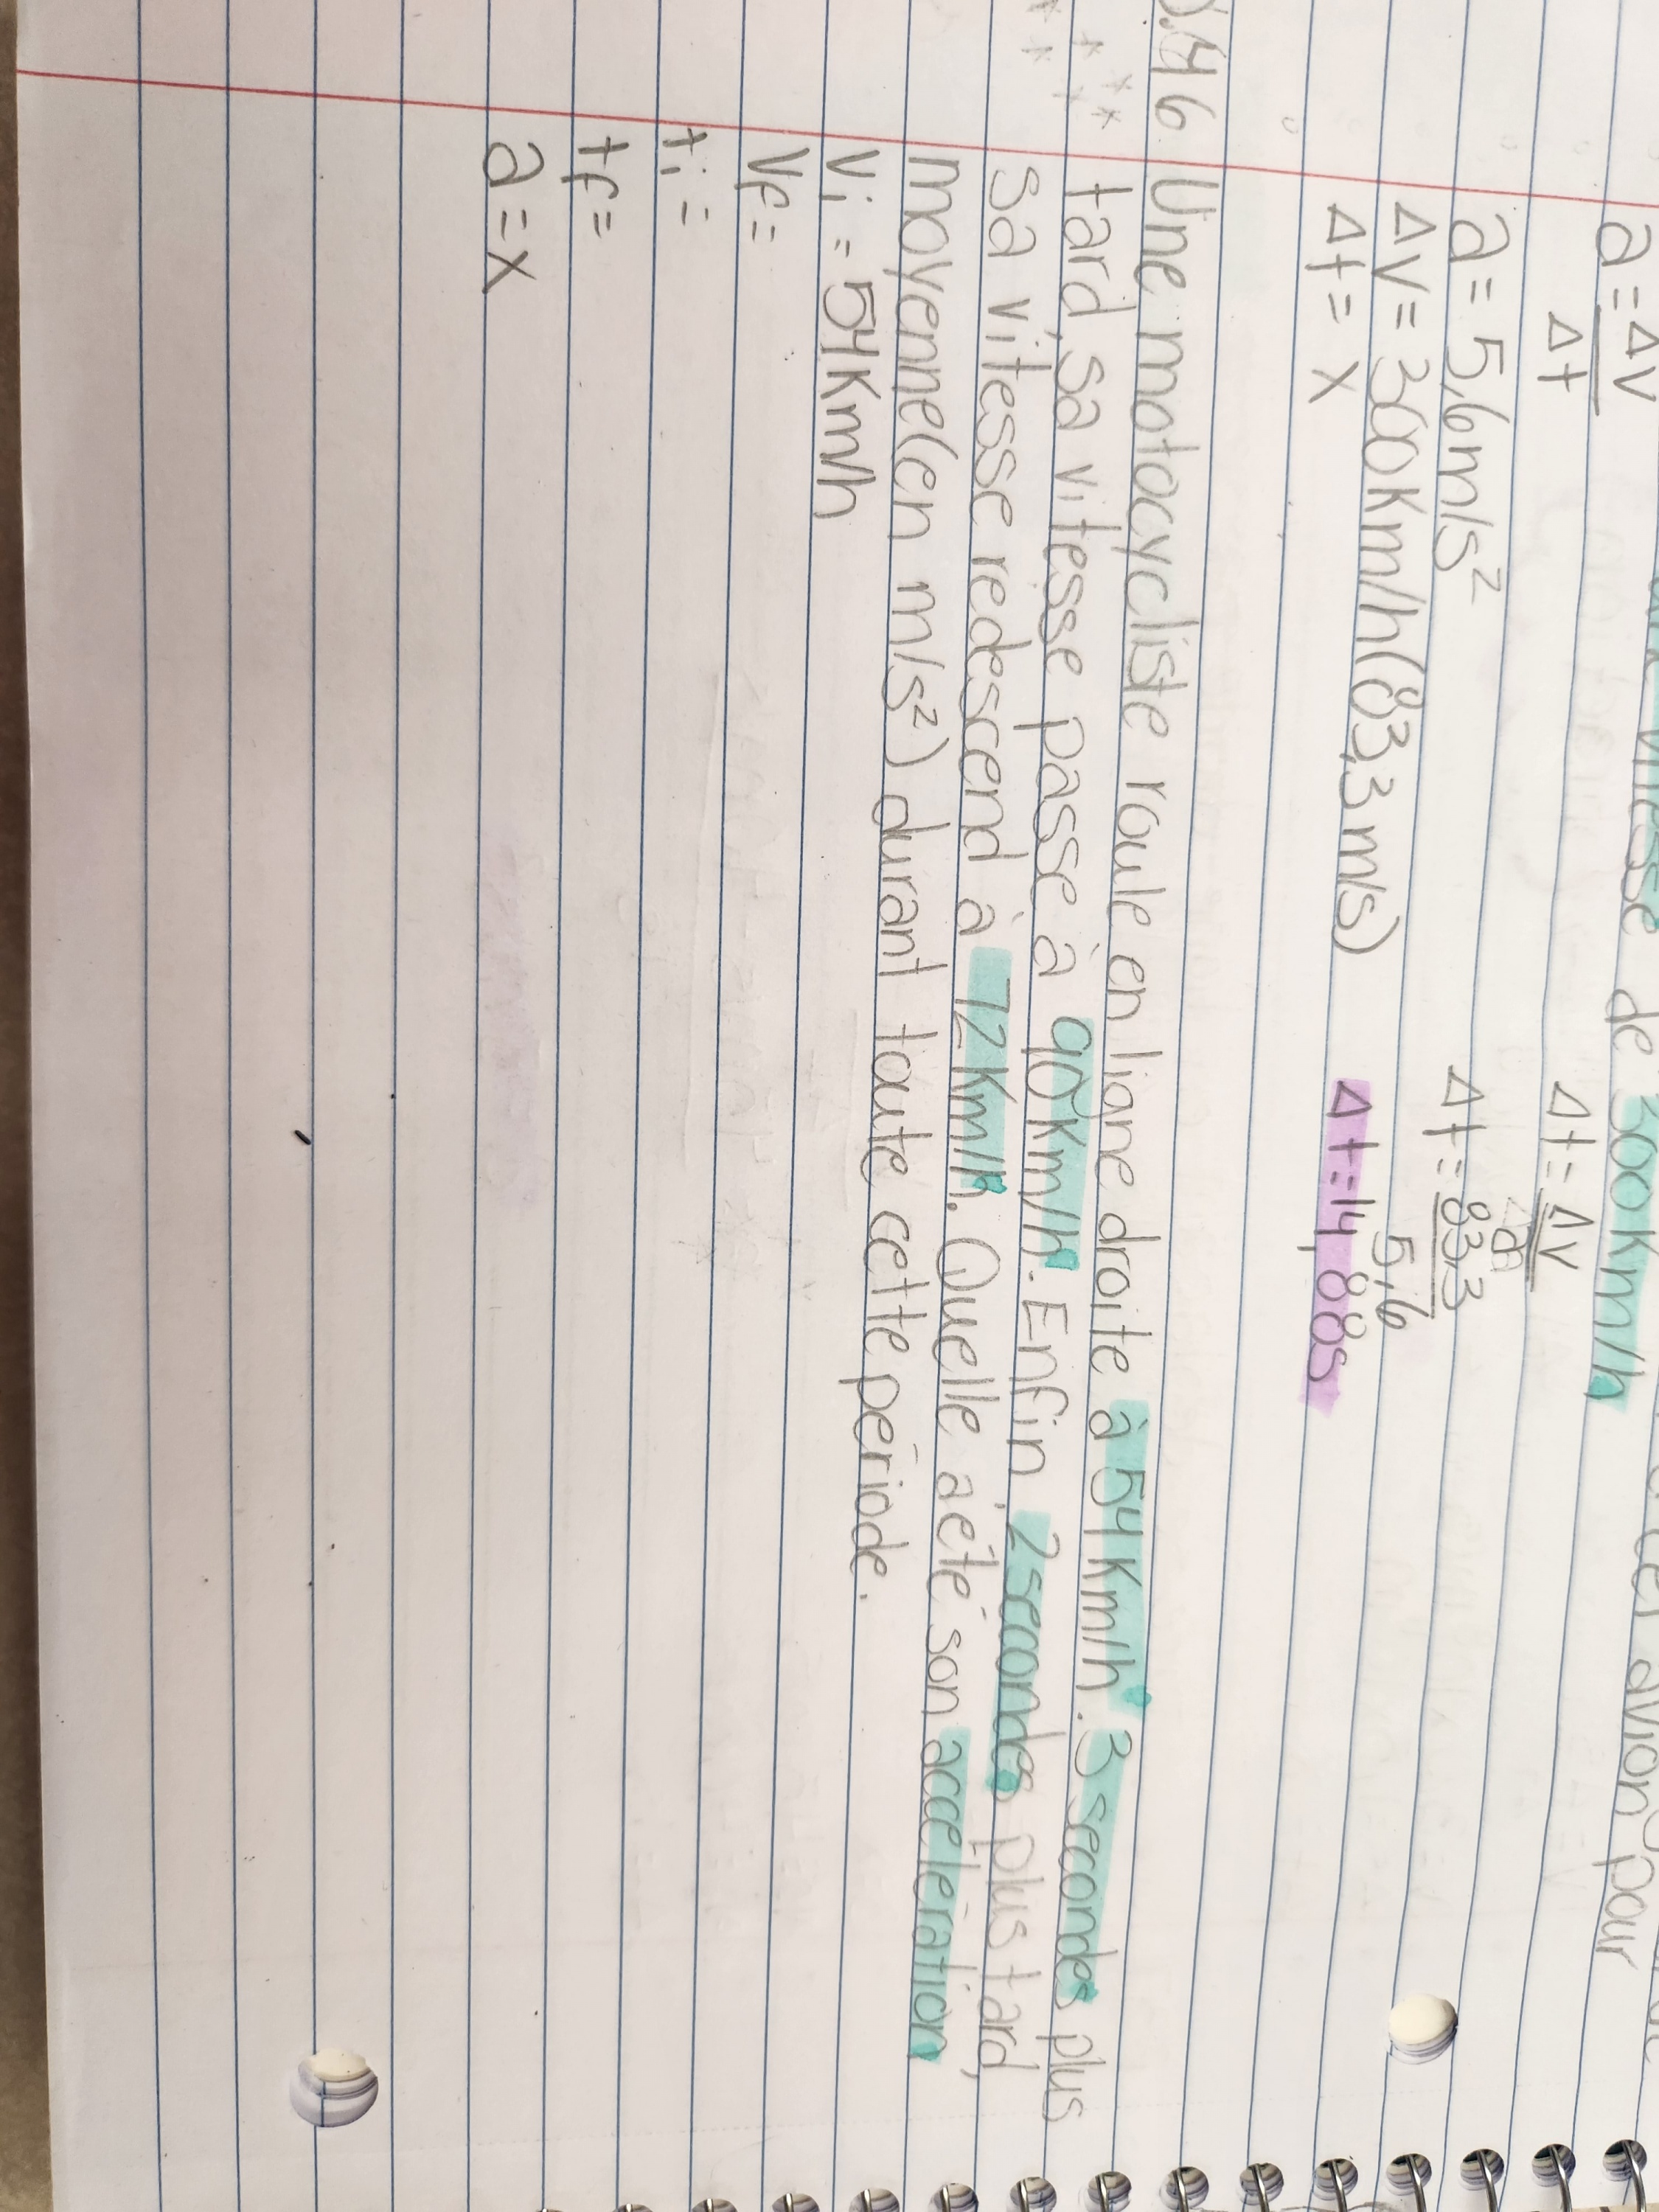 vitesse de 300Km/h
avion pour
a = Δv
Δt
Δt = Δv
a
a = 5,6m/s²
Δt = 83,3
5,6
Δv = 300Km/h(83,3m/s)
Δt = x
Δt = 14,88s
p.46 Une motocycliste roule en ligne droite à 54Km/h. 3 secondes plus
tard, sa vitesse passe à 90Km/h. Enfin, 2 secondes plus tard,
sa vitesse redescend à 72Km/h. Quelle a été son accéleration
moyenne(en m/s²) durant toute cette période.
Vi = 54Km/h
Vf =
ti =
tf =
a = x